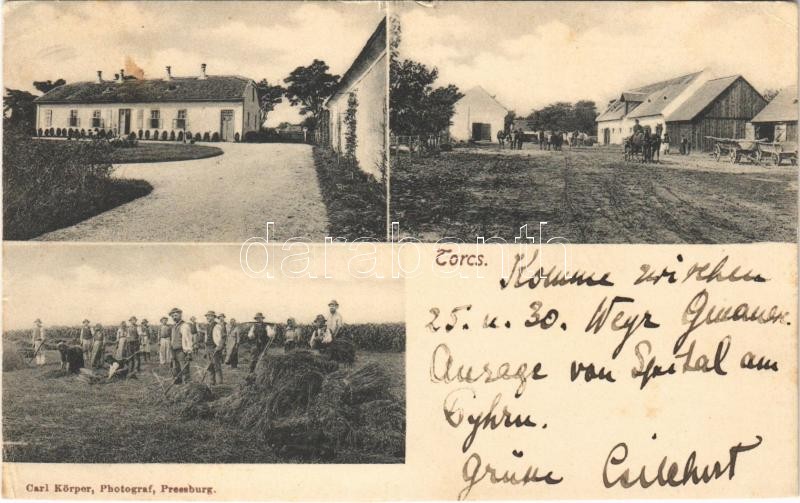 Torcs.
Komme zwischen
25. u. 30. Weyr
von Spital am
Pyhrn.
Grüße
darabanth
Carl Körper, Photograf, Pressburg.